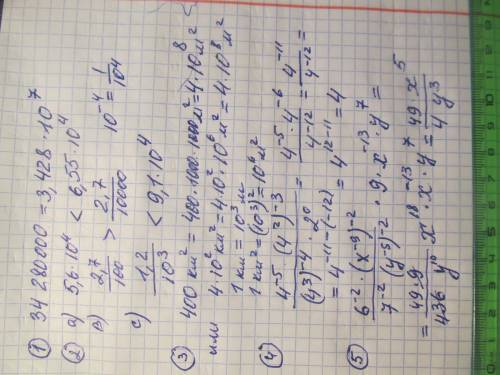 ① 34 280 000 = 3,428 · 10⁷
② а) 5,6·10⁴ < 6,55·10⁴
в) 2,7/100 > 2,7/10000   10⁻⁴ = 1/10⁴
с) 1,2/10³ < 9,1·10⁴
③ 400 км² = 400·1000·1000 м² = 4·10⁸ м²
или 4·10² км² = 4·10²·10⁶ м² = 4·10⁸ м²
1 км = 10³ м
1 км² = (10³)² = 10⁶ м²
④ 4⁻⁵ (4²)⁻³/(4³)⁻⁴ · 2⁰ = 4⁻⁵ · 4⁻⁶/4⁻¹² = 4⁻¹¹/4⁻¹² =
= 4⁻¹¹⁻⁽⁻¹²⁾ = 4¹²⁻¹¹ = 4
⑤ 6⁻² · (x⁻⁹)⁻²/7⁻² (y⁻⁵)⁻² · 9 · x⁻¹³ · y⁷ =
= 49 · 9/436 y¹⁰ x¹⁸ · x⁻¹³ · y⁷ = 49 x⁵/4 y³